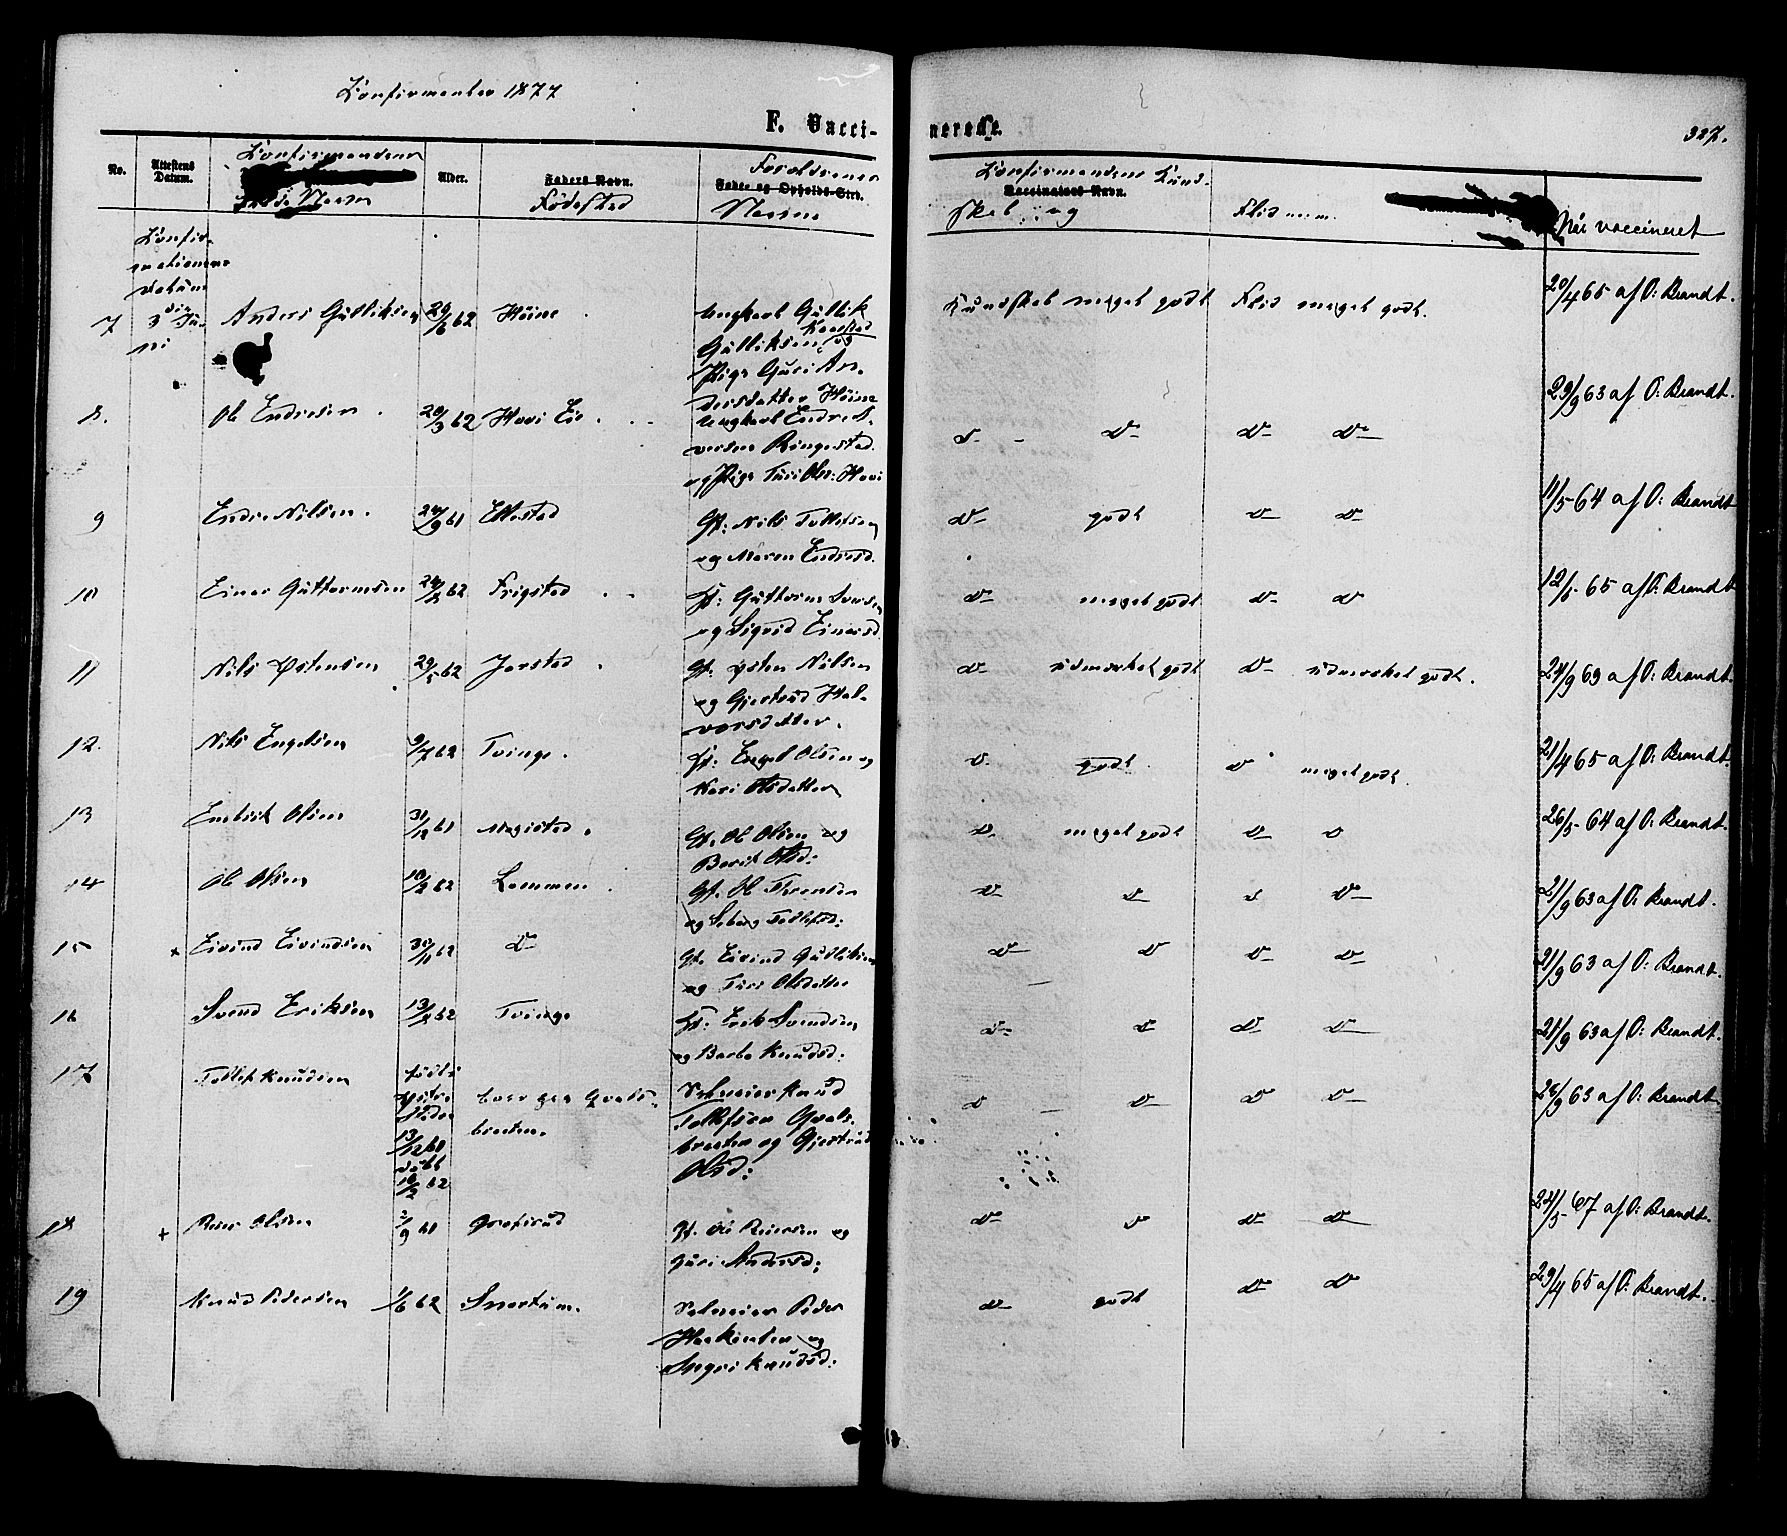 Konfirmanter 1877
F. Vacci-
nerede.
327.
No. Attestens Datum. Konfirmandens fulde Navn Alder. Faders Navn. Fødested Forældrenes Fader og Opholds-Sted. Navne
Konfirmandens Kund- Vaccinatørs Navn. skab og Flid Når vaccineret
Konfir-
mationens
Datum
7 3 Ju- Anders Gulliksen 29/6 62 Høine Ungkarl Gullik
ni Gulliksen Kaastad og
Pige Guri An-
dersdatter Høine
Kundskab meget godt Flid meget godt. 20/4 65 af O: Brandt.
8. Ole Endresen 20/3 62 Hovi Eie Ungkarl Endre
Ringestad
og Pige Turi Ols: Hovi
D- D- D- D- 29/9 63 af O: Brandt.
9 Endre Nilsen. 24/9 61 Ellestad Gf: Nils Tollefsen
og Maren Endresd.
D- godt D- D- 11/5 64 af O: Brandt
10 Einar Guttormsen 24/2 62 Frigstad Hf: Guttorm
og Sigrid Einarsd.
D- meget godt D- D 12/5 65 af O: Brandt
11 Nils Østensen 29/5 62 Jarstad Gf: Østen Nilsen
og Gjertrud Hal-
vorsdatter.
D- udmærket godt D- udmærket godt. 24/9 63 af O: Brandt.
12. Nils Engelsen 9/7 62 Tvinge. Hf: Engel Olsen og
Kari Olsdatter
D- godt D meget godt. 21/4 65 af O: Brandt.
13 Embrik Olsen 31/12 61 Magistad. Gf. Ole Olsen og
Berit Olsd:
D- meget godt D- D 26/5 64 af O: Brandt.
14 Ole Olsen 10/2 62 Lommen Gf. Ole
og Tollefsd:
D- D D D- 21/9 63 af O: Brandt.
15 x Eivind Eivindsen 30/11 62 D- Gf. Eivind Gulliksen
og Turi Olsdatter
D- D D- D- 21/9 63 af O: Brandt.
16 Svend Eriksen 13/2 62 Tvinge Hf: Erik Svendsen
og Barbo Knudsd:
D- D D- D- 21/9 63 af O: Brandt.
17 Tollef Knudsen født
13/12 61
døbt
16/2 62
Qvals-
braaten.
Selveier Knud
Tollefsen Qvals-
braaten og Gjertrud
Olsd:
D D- D D- 20/9 63 af O: Brandt
18 + Reier Olsen 2/9 61 Grøfsrud Gf. Ole Reiersen og
Guri Andersd:
D- D D- D- 24/5 67 af O: Brandt.
19 Knud Pedersen 1/6 62 Snortum. Selveier Peder
og
Ingri Knudsd:
D- godt D- D 29/4 65 af O: Brandt.